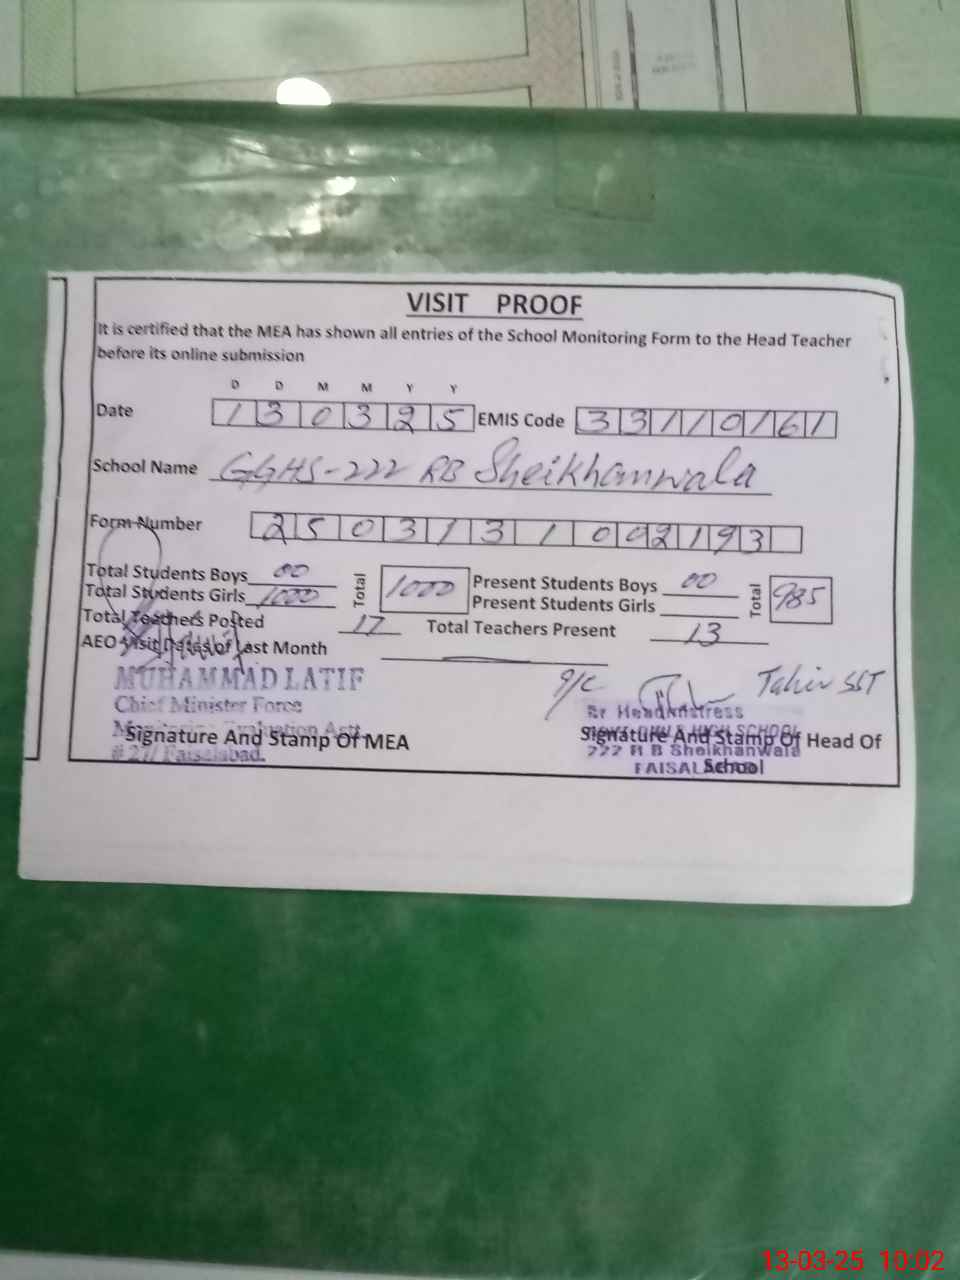 VISIT PROOF
It is certified that the MEA has shown all entries of the School Monitoring Form to the Head Teacher
before its online submission
D D M M Y Y
Date 1 3 0 3 2 5 EMIS Code 3 3 1 1 0 1 6 1
School Name GGHS-222 RB Sheikhanwala
Form Number 2 5 0 3 1 3 1 0 0 2 1 9 3
Total Students Boys 00 Total 1000 Present Students Boys 00 Total 985
Total Students Girls 1000 Present Students Girls
Total Teachers Posted 17 Total Teachers Present 13
AEO Visit Dates of Last Month
MUHAMMAD LATIF
Chief Minister Force
Monitoring Evaluation Astt.
#27 Faisalabad.
Signature And Stamp Of MEA
I/C Tahir SST
Sr Headmistress
HIGH SCHOOL
222 R B Sheikhanwala
FAISALABAD
Signature And Stamp Of Head Of
School
13-03-25 10:02